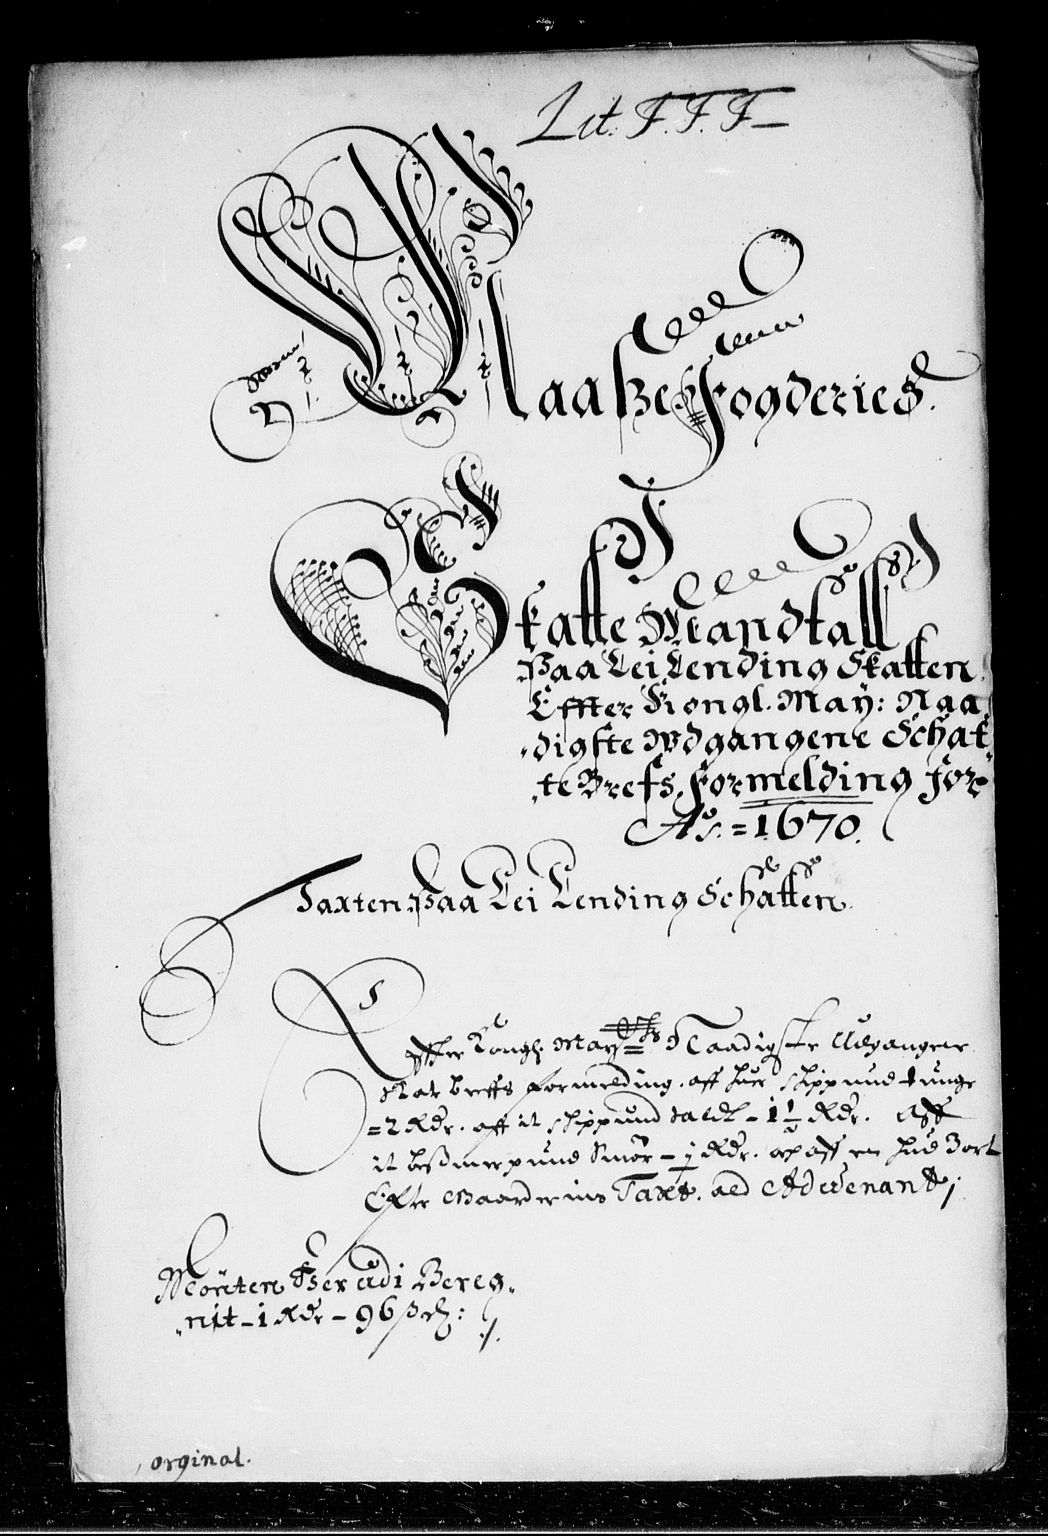 Lit. F. F. F
Maaße Fogderies
Skatte Mandtall
Paa Leilending Skatten
Effter Kongl. May: Naa
digste Wdgangene Schat
te Brefs, Formelding For
A.o = 1670.
Taxten Paa Lei Lending Schatten
Effter Kongl: May:tts Naadigste Udgangne
skat breffs formelding, aff huer skippund tunge
= 2 Rdr. aff it skippund salt - 1½ Rdr. Aff
it bißmerpund Smør - ½ Rdr. och aff en hud Bort
Efter Waarderins Taxt. ald Advenant
Mønten Her udi Bereg
nit - 1 Rdr - 96 ß d:
orginal.